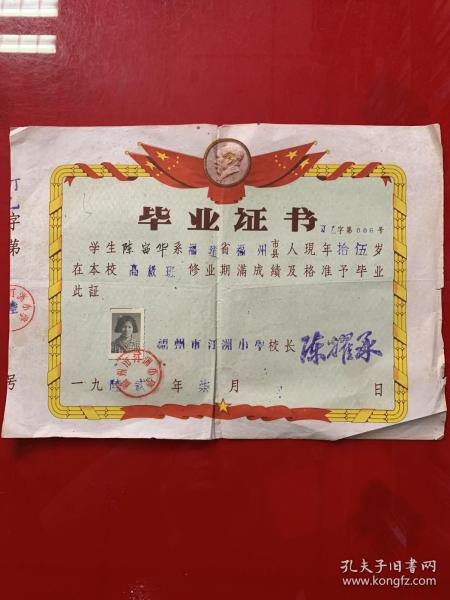 毕业证书
字第006号
学生陈富华系福建省福州市县人现年拾伍岁
在本校高级班修业期满成绩及格准予毕业
此证
福州市江洲小学校长 陈耀承
一九陆贰年柒月 日
字第
号
孔夫子旧书网
www.kongfz.com